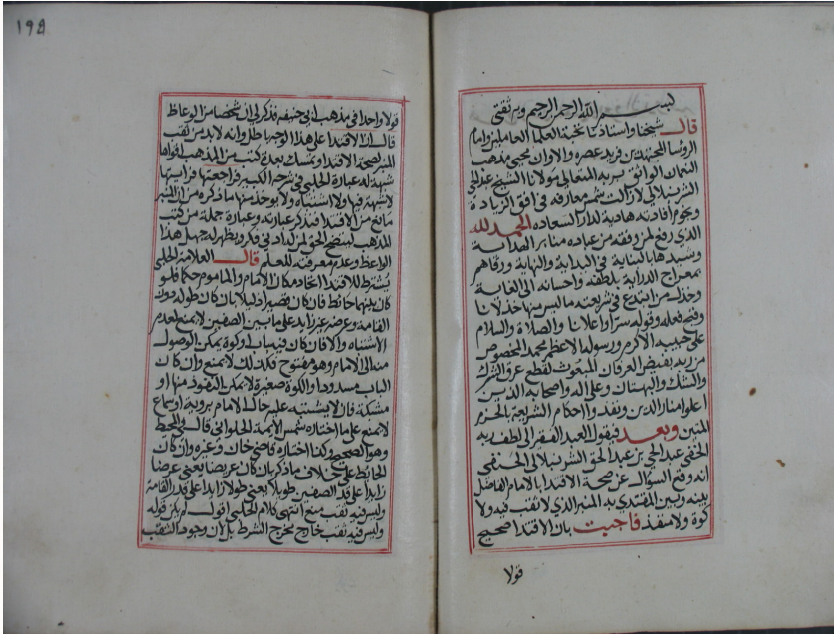 بسم الله الرحمن الرحيم وبه ثقتي
قال شيخنا واستاذنا نخبة العلما العاملين وامام
الروسا المجتهدين فريد عصره والاوان محيي مذهب
النعمان الواثق بربه المتعالي مولانا الشيخ عبد الحي
الشرنبلالي لا زالت شمس معارفه في افق الزيادة
ونجوم افادته هادية لدار السعاده الحمد لله
الذي رفع لمن وفقه من عباده منابر الهداية
وشيدها بالعناية في البداية والنهاية ورقاهم
بمعراج الدراية بلطفه واحسانه الى الغاية
وخذل من ابتدع في شريعته ما ليس منها خذلانا
وقبح فعله وقوله سرا واعلانا والصلاة والسلام
على حبيبه الاكرم ورسوله الاعظم محمد المخصوص
من ربه بفيض العرفان المبعوث لقطع عرق الشرك
والشك والبهتان وعلى اله واصحابه الذين
اعلوا منار الدين ونفذوا احكام الشريعة بالحزم
المتين وبعد فيقول العبد الفقير الى لطف ربه
الخفي عبد الحي بن عبد الحق الشرنبلالي الحنفي
انه وقع السؤال عن صحة الاقتدا بالامام الفاصل
بينه وبين المقتدي به المنبر الذي لا ثقب فيه ولا
كوة ولا منفذ فاجبت بان الاقتدا صحيح
قولا
١٩٤
قولا واحدا في مذهب ابي حنيفه فذكر لي ان شخصا من الوعاظ
قال ان الاقتدا على هذا الوجه باطل وانه لابد من ثقب
المنبر لصحة الاقتدا وتمسك بعدة كتب من المذهب اقواها
شبهة له عبارة الحلبي في شرحه الكبير فراجعتها فرايتها
لا شبهة فيها ولا اشتباه ولا يوخذ منها ما ذكره من ان المنبر
مانع من الاقتدا فنذكر عبارته وعبارة جملة من كتب
المذهب ليتضح الحق لمن له ادنى فكر ويظهر له جهل هذا
الواعظ وعدم معرفته للعلم قال العلامة الحلبي
يشترط للاقتدا اتحاد مكان الامام والماموم حكما فلو
كان بينهما حائط فان كان قصيرا ذليلا بان كان طوله دون
القامة وعرضه غير زايد على ما بين الصفين لا يمنع لعدم
الاشتباه والا فان كان فيه باب او كوة يمكن الوصول
منه الى الامام وهو مفتوح فكذلك لا يمنع وان كان
الباب مسدودا والكوة صغيرة لا يمكن النفوذ منها او
مشبكة فان لا يشتبه عليه حال الامام برويه او سماع
لا يمنع على ما اختاره شمس الايمة الحلواني قال في المحيط
وهو الصحيح وكذا اختاره قاضي خان وغيره وان كان
الحائط على خلاف ما ذكر بان كان عريضا يعني عرضا
زايدا على قدر الصفين طويلا يعني طولا زايدا على قدر القامة
وليس فيه ثقب منع انتهى كلام الحلبي اقول لم يكن قوله
وليس فيه ثقب خارج مخرج الشرط بل لان وجود الثقب